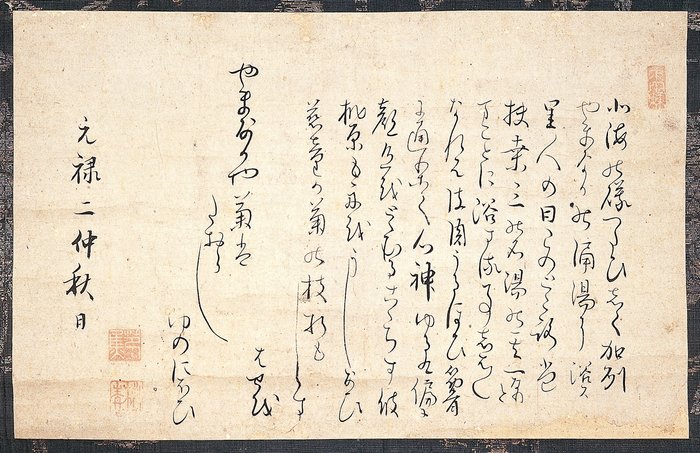 北海の磯つたひして加州
やまなかの涌湯に浴ス
里人の曰このところは
扶桑三の名湯の其一なりと
まことに浴する事しはしは
なれは皮肉うるほひ筋骨
に通りて心神ゆるく偏に
顔色をとゝむるこゝちす彼
桃原も舟をうしなひ
慈童か菊の枝折もしらす
はせを
やまなかや菊は
たおらし
ゆのにほひ
元禄二仲秋日